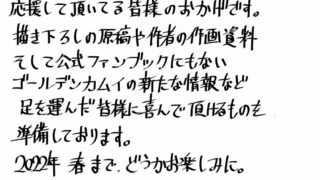 応援して頂いてる皆様のおかげです。
描き下ろしの原稿や作者の作画資料
そして公式ファンブックにもない
ゴールデンカムイの新たな情報など
足を運んだ皆様に喜んで頂けるものを
準備しております。
2022年 春まで、どうかお楽しみに。